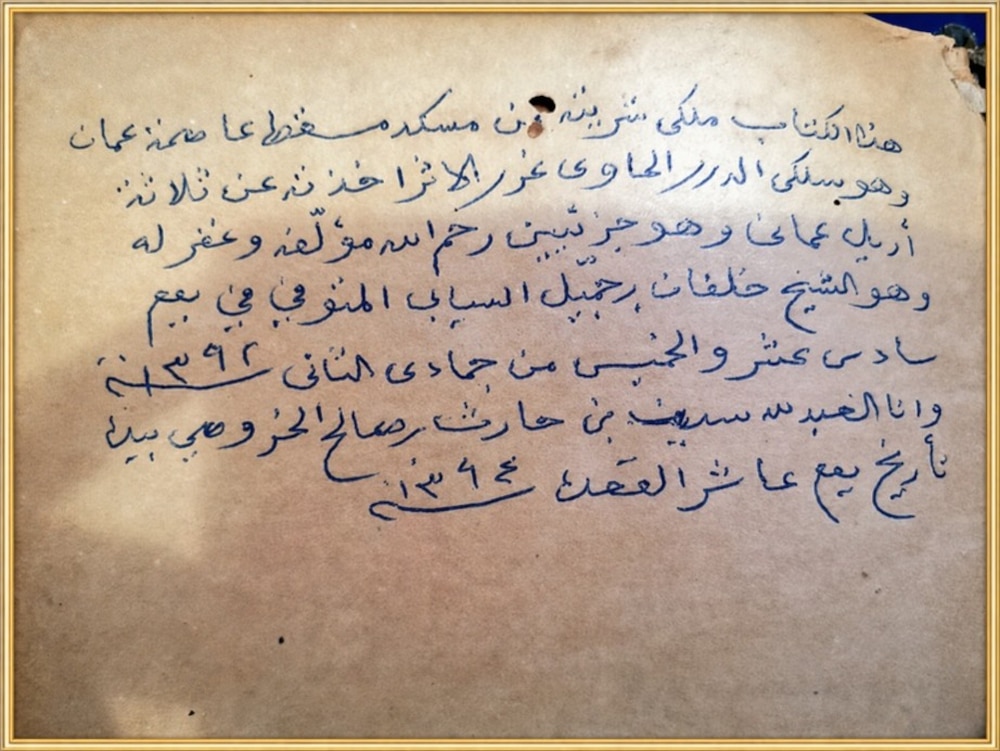 هذا الكتاب ملكي شريته من مسكد مسقط عاصمة عمان
وهو سلك الدرر الحاوى غرر الاثر اخذته عن ثلاثة
أريل عمانى وهو جزئيين رحم الله مؤلّفه وغفر له
وهو الشيخ خلفان بن جمّيّل السيابي المتوفي في يوم
سادس عشر والخميس من جمادى الثانى سنة ١٣٩٢
وانا العبد لله سيف بن حارث بن صالح الخروصي بيده
تأريخ يوم عاشر القعدة سنة ١٣٩٤